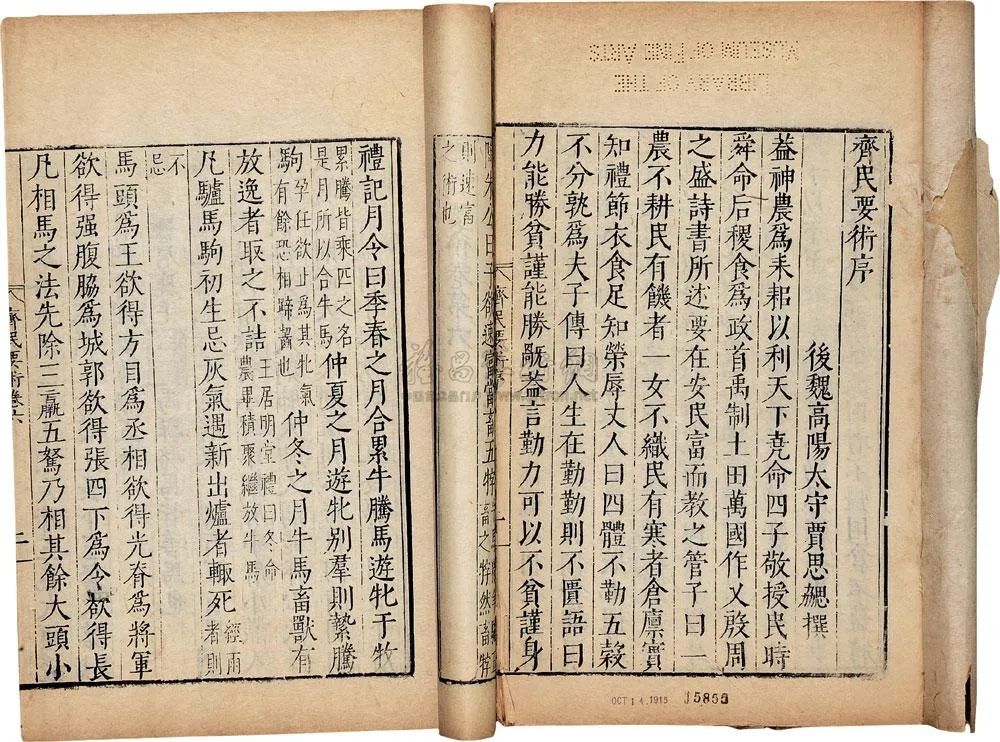 LIBRARY OF THE
MUSEUM OF FINE ARTS
齊民要術序
後魏高陽太守賈思勰撰
葢神農爲耒耜以利天下堯命四子敬授民時
舜命后稷食爲政首禹制土田萬國作乂殷周
之盛詩書所述要在安民富而教之管子曰一
農不耕民有饑者一女不織民有寒者倉廩實
知禮節衣食足知榮辱丈人曰四體不勤五穀
不分孰爲夫子傳曰人生在勤勤則不匱語曰
力能勝貧謹能勝旤葢言勤力可以不貧謹身
齊民要術序
OCT 14 1915 15855
則速富
之術也
禮記月令曰季春之月合累牛騰馬遊牝于牧
累騰皆乘匹之名
是月所以合牛馬
仲夏之月遊牝别羣則縶騰
駒
孕任欲止爲其牝氣
有餘恐相蹄齧也
仲冬之月牛馬畜獸有
放逸者取之不詰
王居明堂禮曰冬命
農畢積聚繼放牛馬
凡驢馬駒初生忌灰氣遇新出爐者輒死
經雨
者則
不
忌
馬頭爲王欲得方目爲丞相欲得光脊爲將軍
欲得强腹脇爲城郭欲得張四下爲令欲得長
凡相馬之法先除三羸五駑乃相其餘大頭小
齊民要術卷六
二